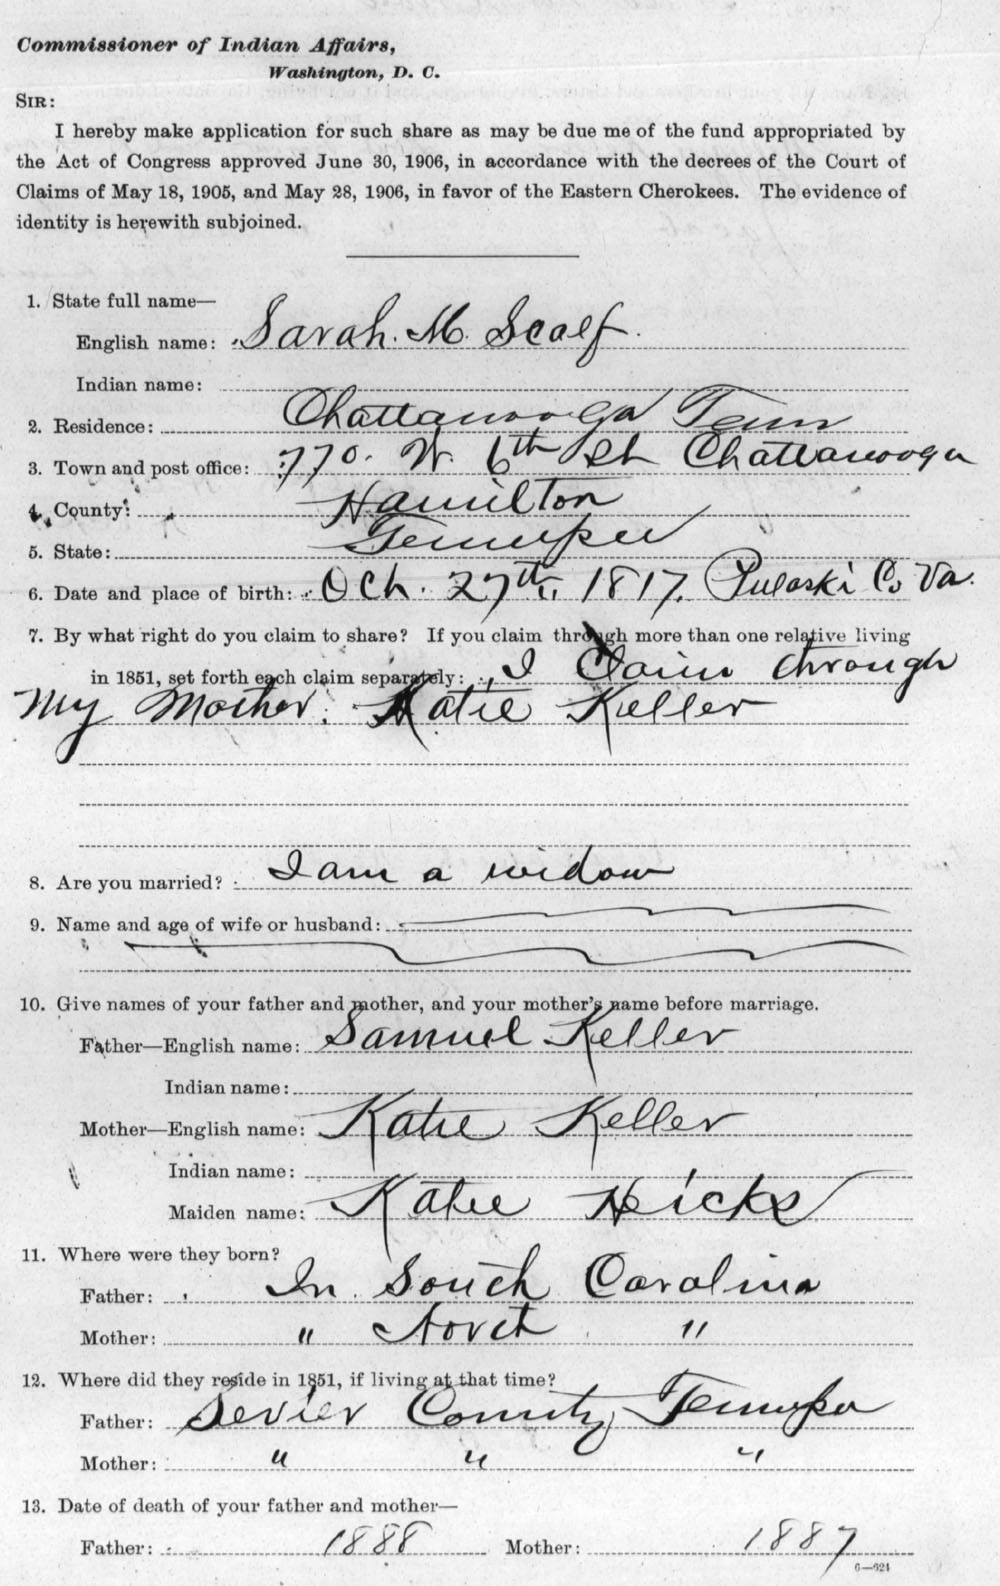 Commissioner of Indian Affairs,
Washington, D. C.
SIR:
I hereby make application for such share as may be due me of the fund appropriated by
the Act of Congress approved June 30, 1906, in accordance with the decrees of the Court of
Claims of May 18, 1905, and May 28, 1906, in favor of the Eastern Cherokees. The evidence of
identity is herewith subjoined.
1. State full name—
English name: Sarah. M. Scalf.
Indian name:
2. Residence: Chattanooga Tenn
3. Town and post office: 770. W. 6th St Chattanooga
4. County: Hamilton
5. State: Tennessee
6. Date and place of birth: Oct. 27th, 1817, Pulaski Co Va.
7. By what right do you claim to share? If you claim through more than one relative living
in 1851, set forth each claim separately: I Claim through
My Mother. Katie Keller
8. Are you married? I am a widow
9. Name and age of wife or husband:
10. Give names of your father and mother, and your mother's name before marriage.
Father—English name: Samuel Keller
Indian name:
Mother—English name: Katie Keller
Indian name:
Maiden name: Katie Hicks
11. Where were they born?
Father: In South Carolina
Mother: " North "
12. Where did they reside in 1851, if living at that time?
Father: Sevier County Tennessee
Mother: " " "
13. Date of death of your father and mother—
Father: 1888 Mother: 1887
6—624